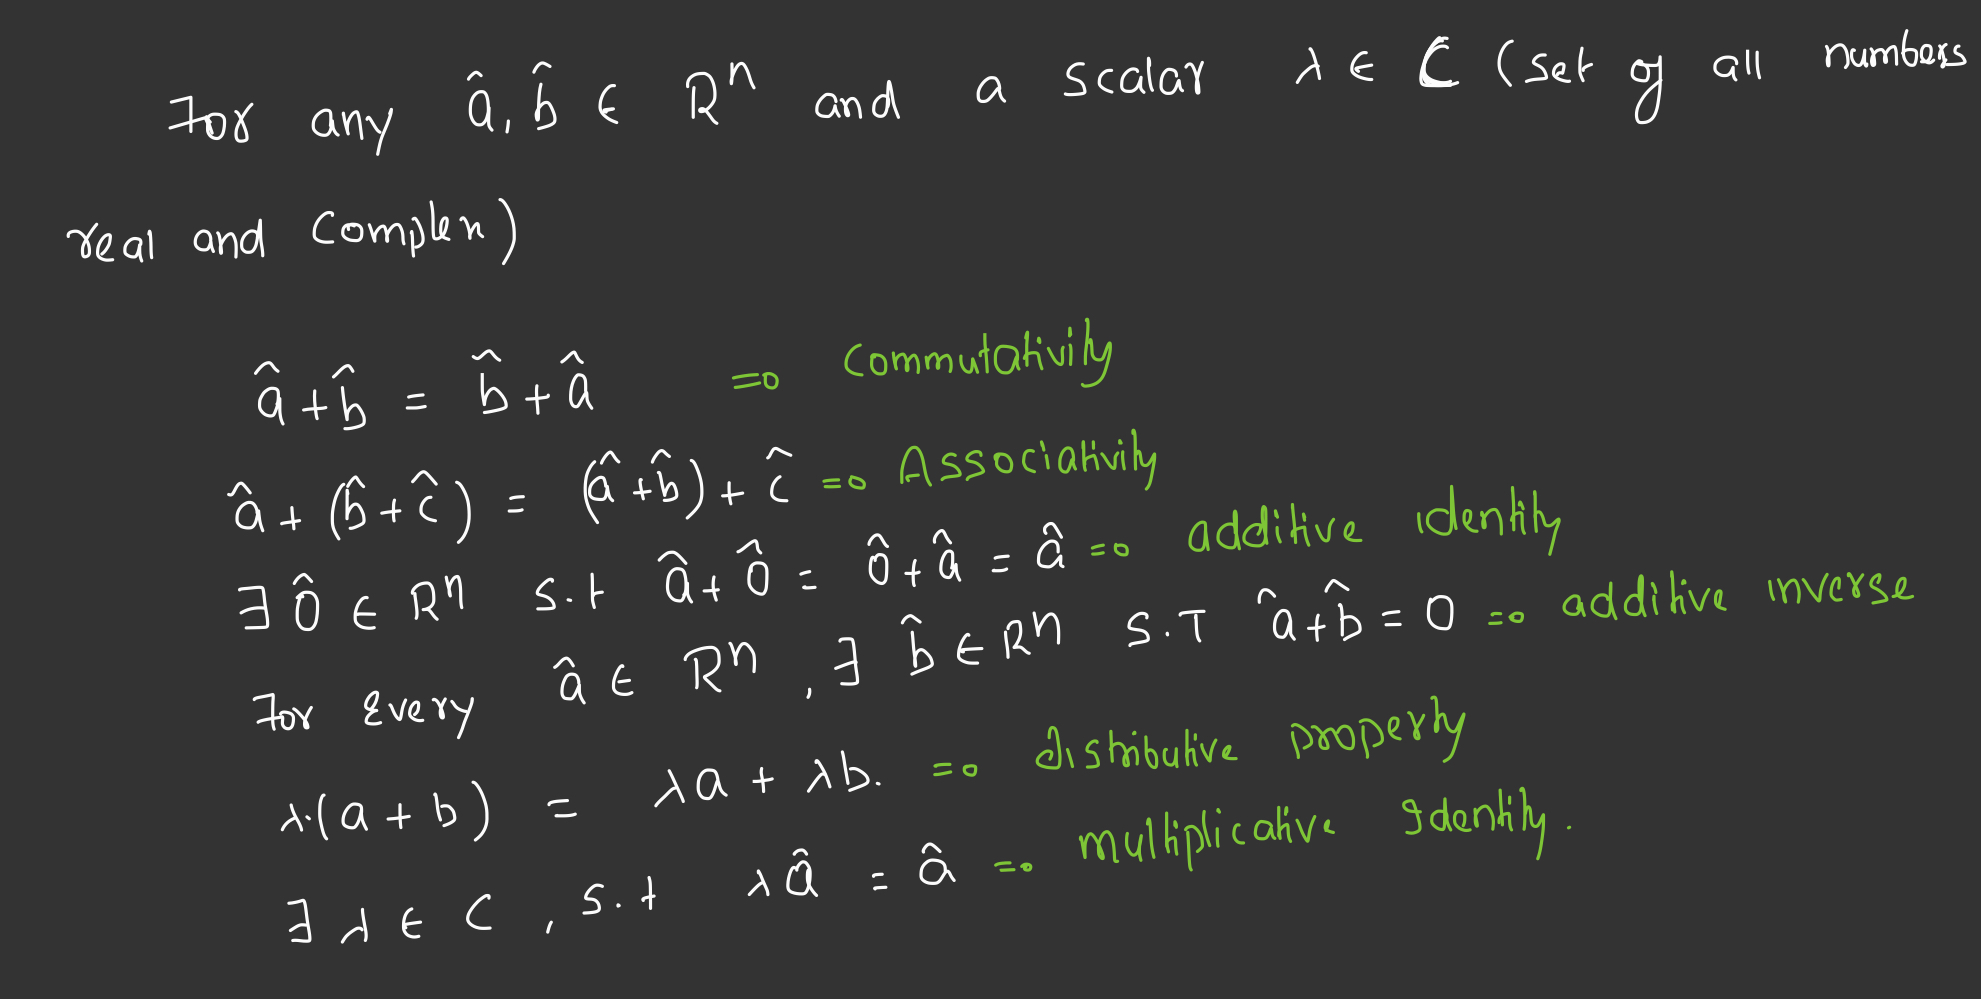 For any â, b̂ ∈ Rⁿ and a scalar λ ∈ C (set of all numbers
real and complex)
â + b̂ = b̂ + â ⇒ Commutativity
â + (b̂ + ĉ) = (â + b̂) + ĉ ⇒ Associativity
∃ 0̂ ∈ Rⁿ s.t â + 0̂ = 0̂ + â = â ⇒ additive identity
For every â ∈ Rⁿ, ∃ b̂ ∈ Rⁿ S.T â + b̂ = 0 ⇒ additive inverse
λ·(a + b) = λa + λb. ⇒ distributive property
∃ λ ∈ C, s.t λâ = â ⇒ multiplicative Identity.